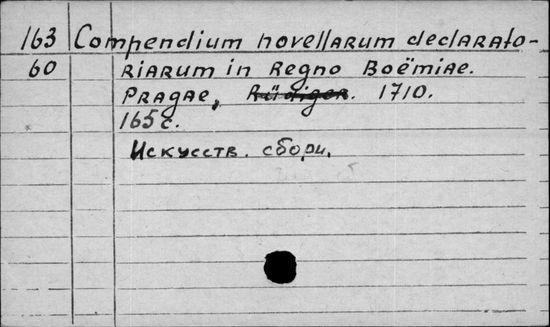 163 Compendium novellarum declarato-
60 riarum in Regno Boëmiae.
Pragae, Rüdiger. 1710.
165 с.
Искусств. сборн.